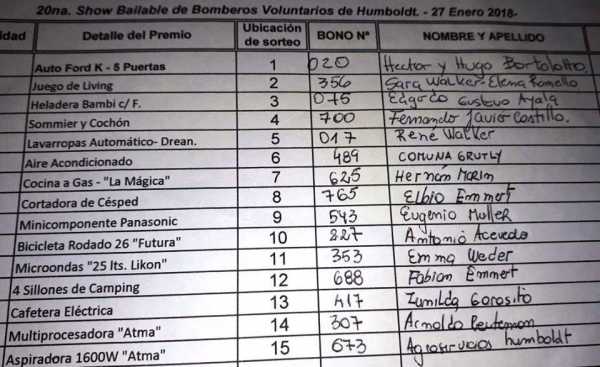 20na. Show Bailable de Bomberos Voluntarios de Humboldt. - 27 Enero 2018-
idad Detalle del Premio Ubicación de sorteo BONO Nº NOMBRE Y APELLIDO
Auto Ford K - 5 Puertas 1 020 Hector y Hugo Bortolotto
Juego de Living 2 356 Sara Walker - Elena Romello
Heladera Bambi c/ F. 3 075 Edgardo Gustavo Ayala
Sommier y Cochón 4 700 Fernando Javier Castillo.
Lavarropas Automático- Drean. 5 017 René Walker
Aire Acondicionado 6 489 COMUNA GRUTLY
Cocina a Gas - "La Mágica" 7 625 Hernán Marin
Cortadora de Césped 8 765 Elbio Emmert
Minicomponente Panasonic 9 543 Eugenio Muller
Bicicleta Rodado 26 "Futura" 10 227 Antonio Acevedo
Microondas "25 lts. Likon" 11 353 Emma Weder
4 Sillones de Camping 12 688 Fabian Emmert
Cafetera Eléctrica 13 417 Zunilda Gorosito
Multiprocesadora "Atma" 14 307 Arnoldo
Aspiradora 1600W "Atma" 15 673 Agroservicios humboldt